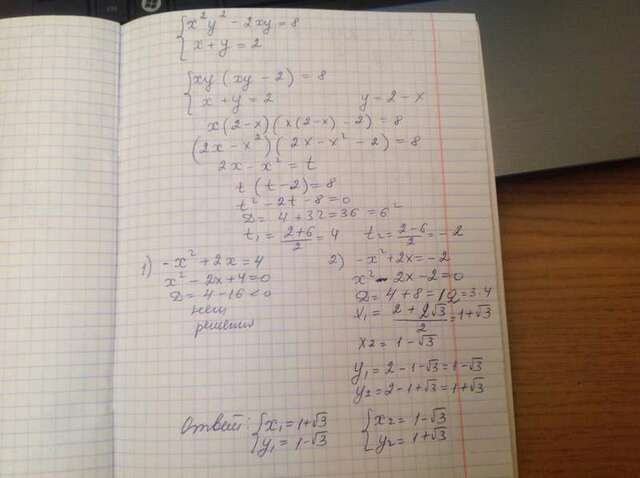 x² y² - 2xy = 8
x + y = 2
xy (xy - 2) = 8
x + y = 2 y = 2 - x
x (2 - x) (x (2 - x) - 2) = 8
(2x - x²) (2x - x² - 2) = 8
2x - x² = t
t (t - 2) = 8
t² - 2t - 8 = 0
D = 4 + 32 = 36 = 6²
t₁ = (2+6)/2 = 4 t₂ = (2-6)/2 = -2
1) -x² + 2x = 4
x² - 2x + 4 = 0
D = 4 - 16 < 0
нет
решения
2) -x² + 2x = -2
x² - 2x - 2 = 0
D = 4 + 8 = 12 = 3·4
x₁ = (2 + 2√3)/2 = 1+√3
x₂ = 1 - √3
y₁ = 2 - 1 - √3 = 1 - √3
y₂ = 2 - 1 + √3 = 1 + √3
Ответ: x₁ = 1+√3 x₂ = 1-√3
y₁ = 1-√3 y₂ = 1+√3